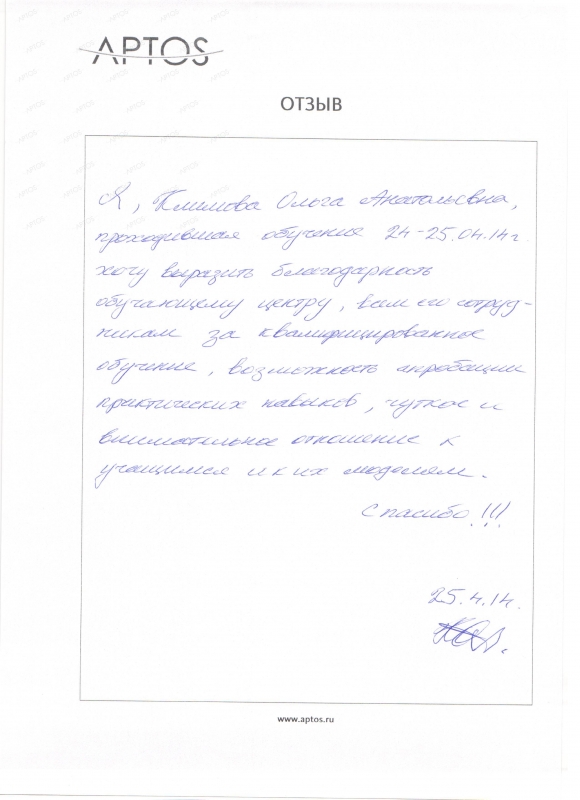 APTOS
ОТЗЫВ
Я, Климова Ольга Анатольевна,
проходившая обучение 24-25.04.14г.
хочу выразить благодарность
обучающему центру, всем его сотруд-
никам за квалифицированное
обучение, возможность апробации
практических навыков, чуткое и
внимательное отношение к
учащимся и к их моделям.
Спасибо!!!
25.4.14.
www.aptos.ru